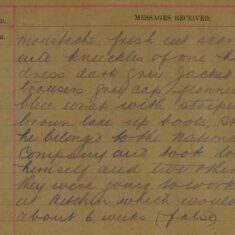 MESSAGES RECEIVED.
moustache fresh cut scar
and knuckles of one h
dress dark grey Jacket
trousers grey cap flannel
blue with stripe
brown lace up boots, st
he belonged to the National
Company and took lo
himself and two other
they were going to work
at Hitchin which would
about 6 weeks (false)